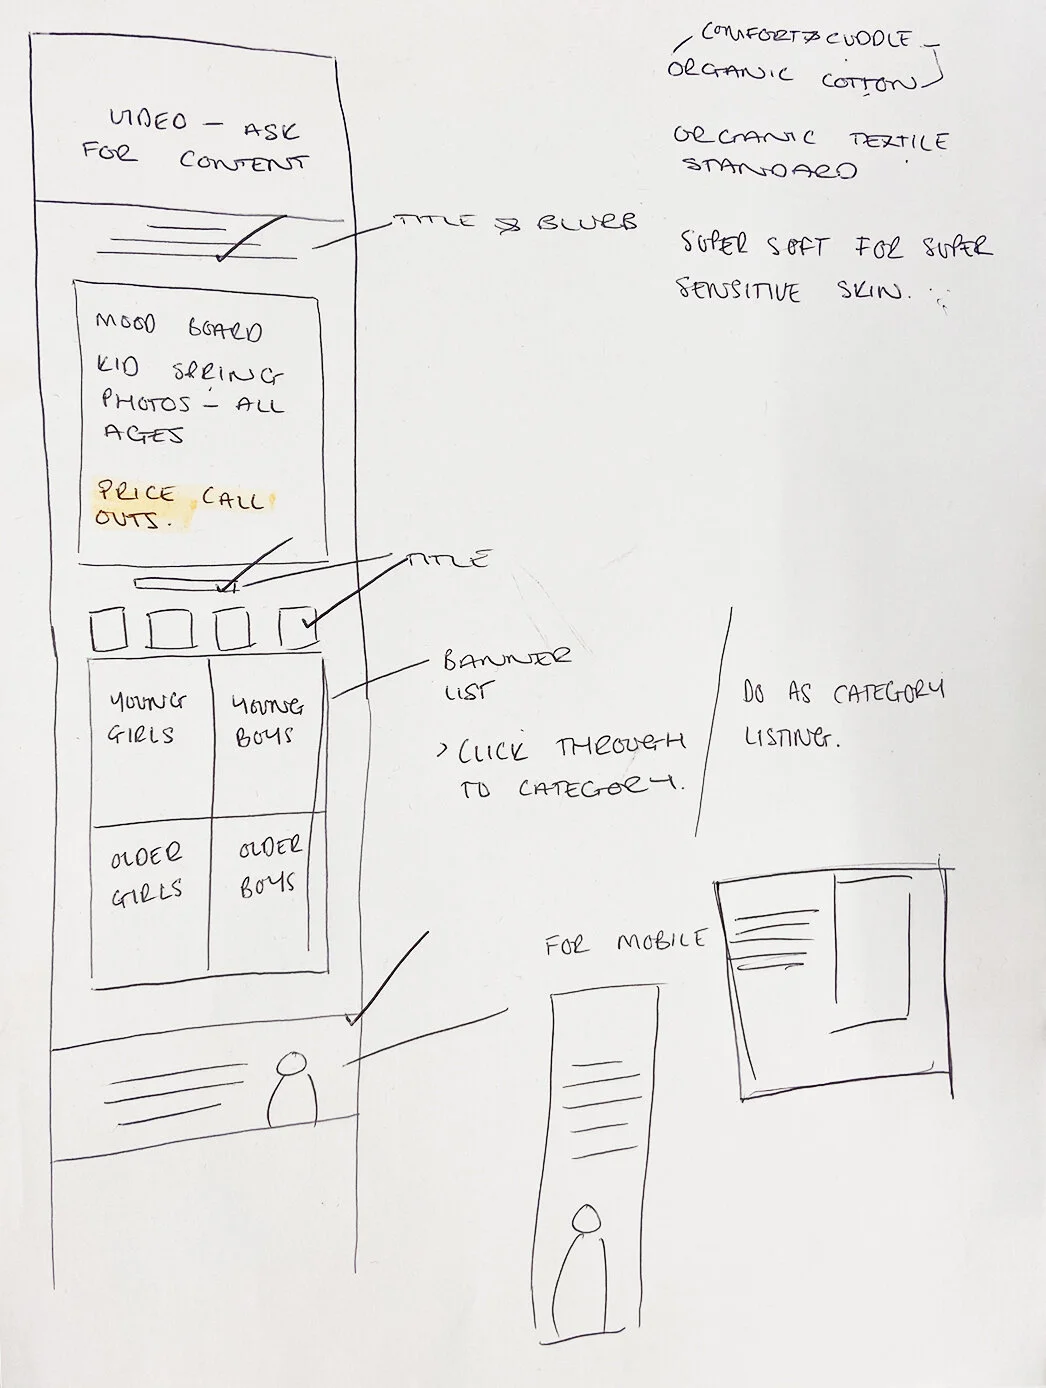 VIDEO – ASK
FOR CONTENT
TITLE & BLURB
MOOD BOARD
KID SPRING
PHOTOS – ALL
AGES
PRICE CALL
OUTS.
TITLE
BANNER
LIST
> CLICK THROUGH
TO CATEGORY.
YOUNG
GIRLS
YOUNG
BOYS
OLDER
GIRLS
OLDER
BOYS
COMFORT & CUDDLE
ORGANIC COTTON
ORGANIC TEXTILE
STANDARD
SUPER SOFT FOR SUPER
SENSITIVE SKIN.
DO AS CATEGORY
LISTING.
FOR MOBILE